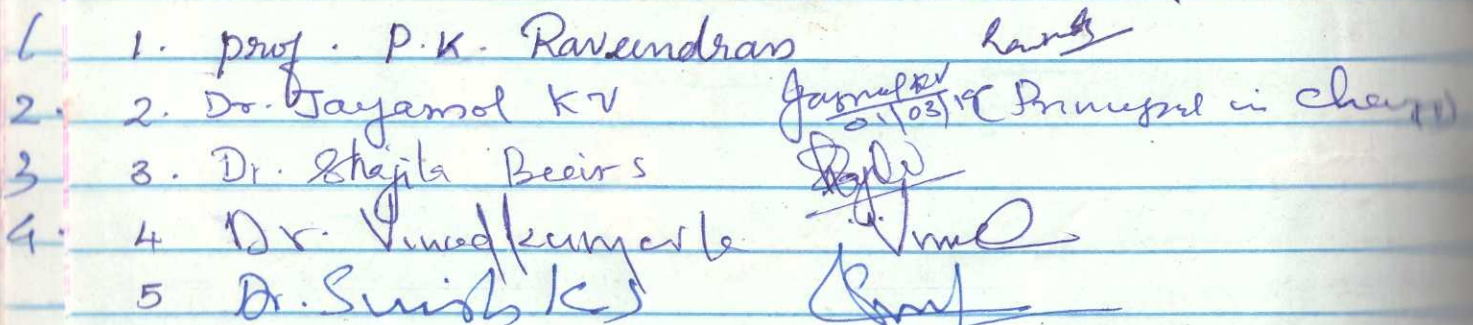 1 1. prof. P.K. Raveendran
2. 2. Dr. Jayamol KV 01/03/19 (Principal in charge)
3 3. Dr. Shajila Beevi S
4. 4 Dr. Vinodkumar
5 Dr. K S